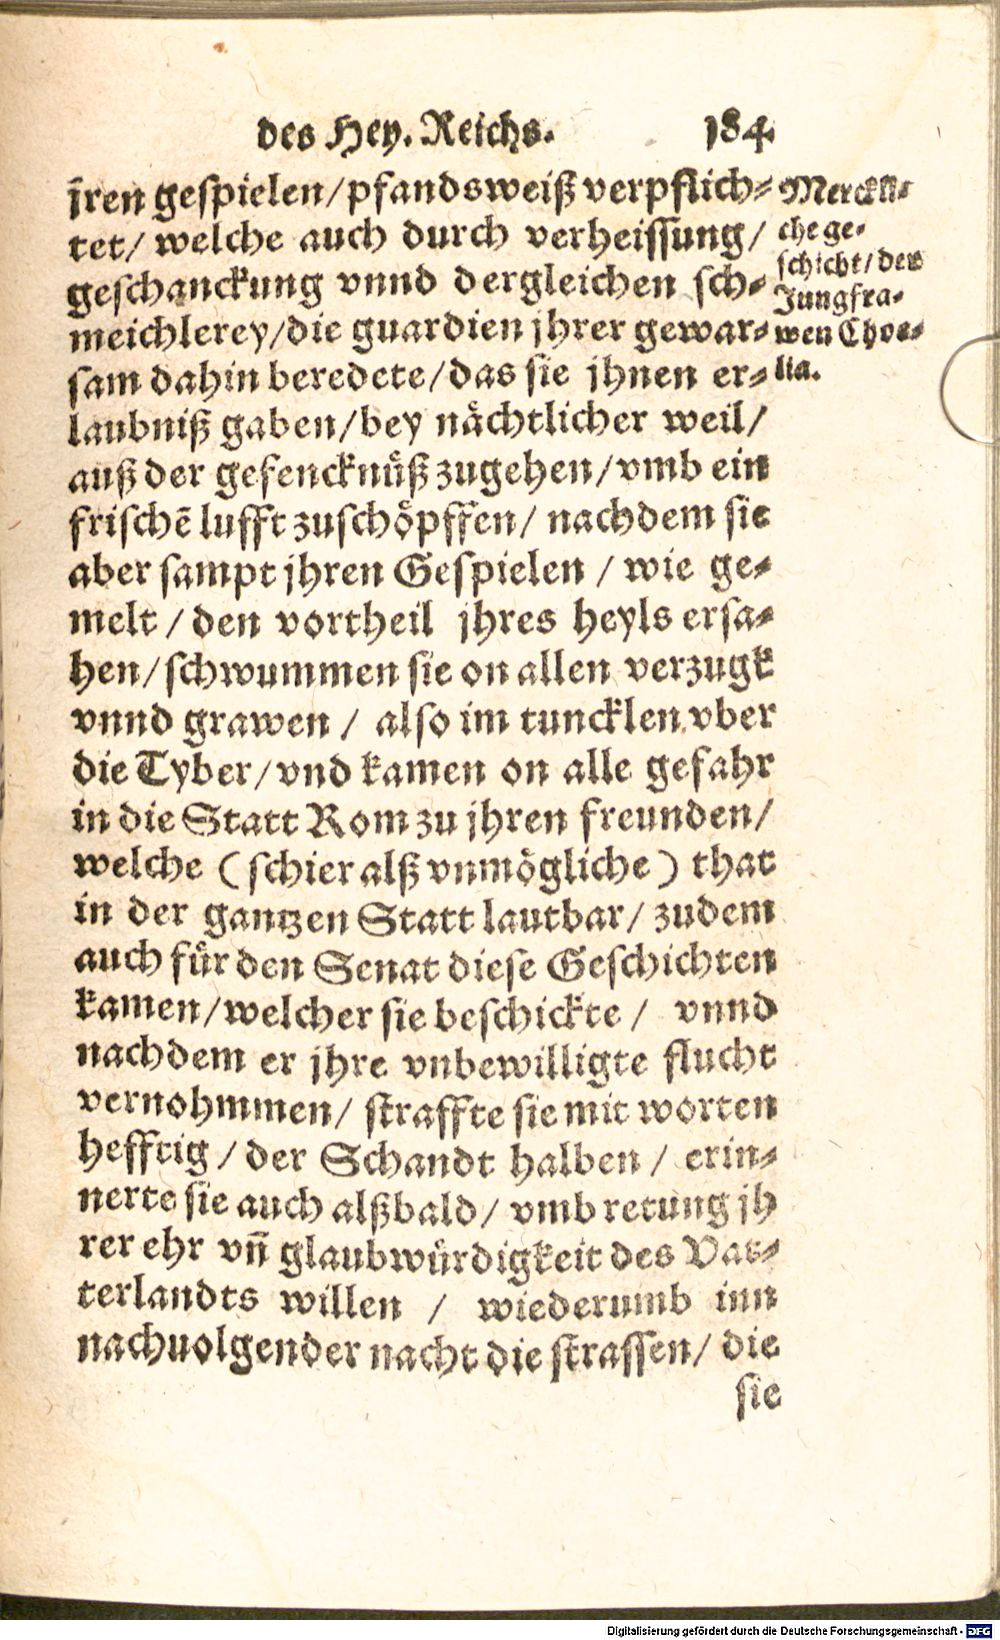 des Hey. Reichs. 184.
j̃ren gespielen/pfandsweiß verpflich-
tet/ welche auch durch verheissung/
geschanckung vnnd dergleichen sch-
meichlerey/die guardien jhrer gewar-
sam dahin beredete/das sie jhnen er-
laubniß gaben/bey nächtlicher weil/
auß der gefencknüß zugehen/vmb ein
frischẽ lufft zuschöpffen/ nachdem sie
aber sampt jhren Gespielen / wie ge-
melt / den vortheil jhres heyls ersa-
hen/schwummen sie on allen verzugk
vnnd grawen / also im tuncklen vber
die Tyber/vnd kamen on alle gefahr
in die Statt Rom zu jhren freunden/
welche (schier alß vnmögliche) that
in der gantzen Statt lautbar/ zudem
auch für den Senat diese Geschichten
kamen/welcher sie beschickte / vnnd
nachdem er jhre vnbewilligte flucht
vernohmmen/ straffte sie mit worten
hefftig / der Schandt halben / erin-
nerte sie auch alßbald/ vmb retung jh
rer ehr vñ glaubwürdigkeit des Vat-
terlandts willen / wiederumb inn
nachuolgender nacht die strassen/ die
sie
Merckli-
che ge-
schicht/der
Jungfra-
wen Choe-
lia.
Digitalisierung gefördert durch die Deutsche Forschungsgemeinschaft - DFG